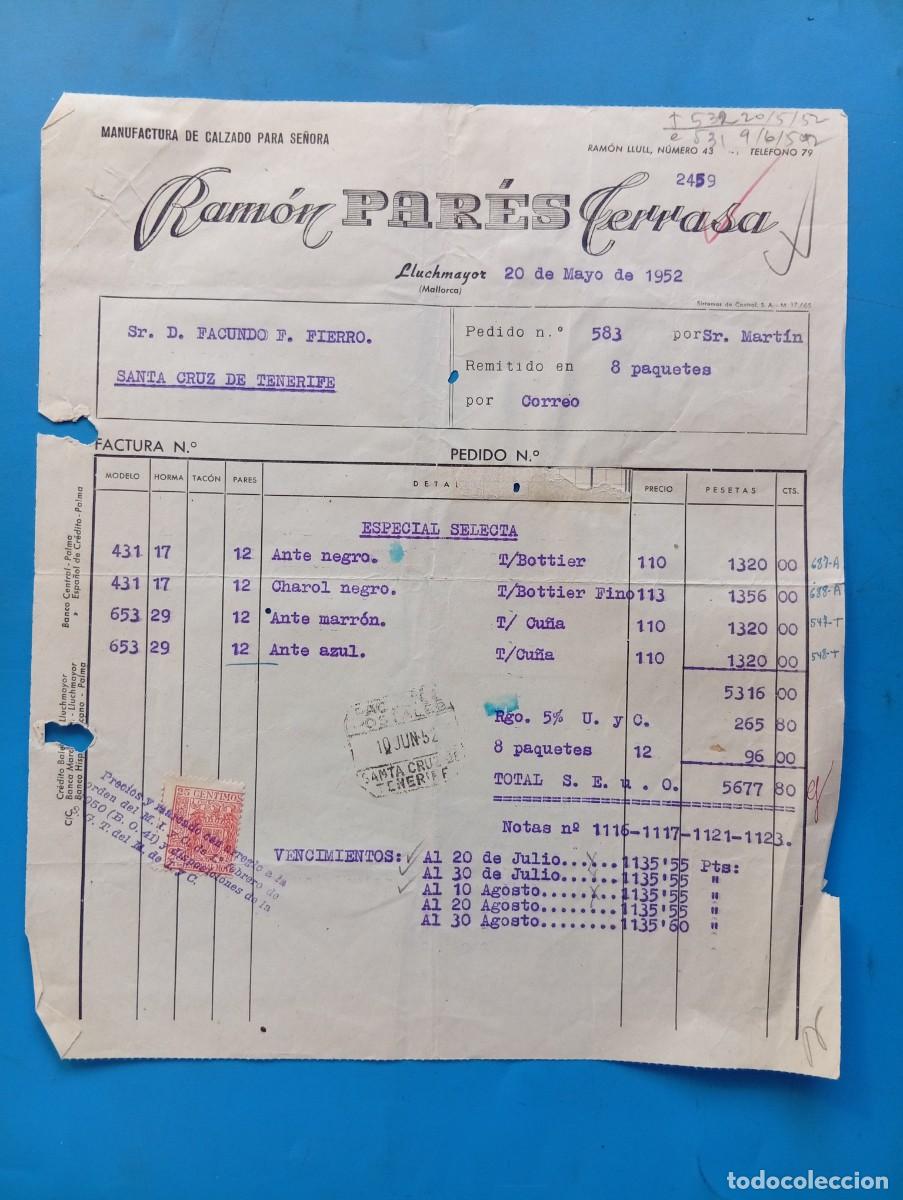 MANUFACTURA DE CALZADO PARA SEÑORA
20/5/52
531 9/6/52
RAMÓN LLULL, NÚMERO 43 TELÉFONO 79
2459
Ramón PARÉS Terrasa
Lluchmayor 20 de Mayo de 1952
(Mallorca)
Sistemas de Control, S. A. - M 17/65
Sr. D. FACUNDO F. FIERRO.
SANTA CRUZ DE TENERIFE
Pedido n.º 583 por Sr. Martín
Remitido en 8 paquetes
por Correo
FACTURA N.º PEDIDO N.º
MODELO HORMA TACÓN PARES DETAL PRECIO PESETAS CTS.
ESPECIAL SELECTA
431 17 12 Ante negro. T/Bottier 110 1320 00 687-A
431 17 12 Charol negro. T/Bottier Fino 113 1356 00 688-A
653 29 12 Ante marrón. T/ Cuña 110 1320 00 547-T
653 29 12 Ante azul. T/Cuña 110 1320 00 548-T
5316 00
Rgo. 5% U. y C. 265 80
8 paquetes 12 96 00
TOTAL S. E. u . O. 5677 80
Notas nº 1116-1117-1121-1123.
VENCIMIENTOS: Al 20 de Julio......1135'55 Pts:
Al 30 de Julio......1135'55 "
Al 10 Agosto........1135'55 "
Al 20 Agosto........1135'55 "
Al 30 Agosto........1135'60 "
POSTALES
10 JUN 52
SANTA CRUZ DE
TENERIFE
25 CENTIMOS
Precios y con arreglo a la
orden del M. I. y C. de febrero de
1950 (B. O. 41) y disposiciones de la
S. G. T. del M. de I. y C.
Banco Central - Palma
" Español de Crédito - Palma
Crédito Bale Lluchmayor
C/C. Banca Mar - Lluchmayor
Banco Hisp cano - Palma
todocoleccion